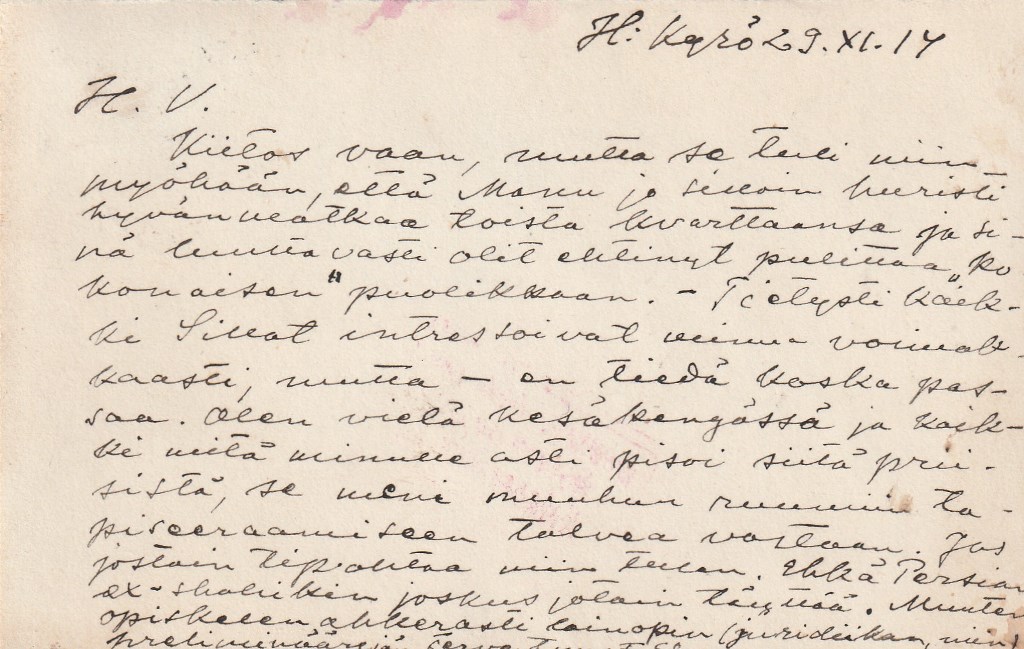 H: Kyrö 29.XI.14
H. V.
Kiitos vaan, mutta se tuli niin
myöhään, että Manu jo silloin huristi
hyvänmatkaa toista kvarttaansa ja si-
nä luultavasti olit ehtinyt pulittaa „ko
konaisen" puolikkaan. – Tietysti kaik-
ki Sillat intressoivat minua voimak-
kaasti, mutta – en tiedä koska pas-
saa. Olen vielä kesäkengässä ja kaik-
ki mitä minulle asti pisoi siitä prii-
sistä, se meni muuhun ruumiin ta-
piseeraamiseen talvea vastaan. Jos
jostain tipahtaa niin tulen. Ehkä Persian
ex-shahikin joskus jotain täyttää. Muuten
opiskelen ahkerasti lainopin (juridiikan, niin)